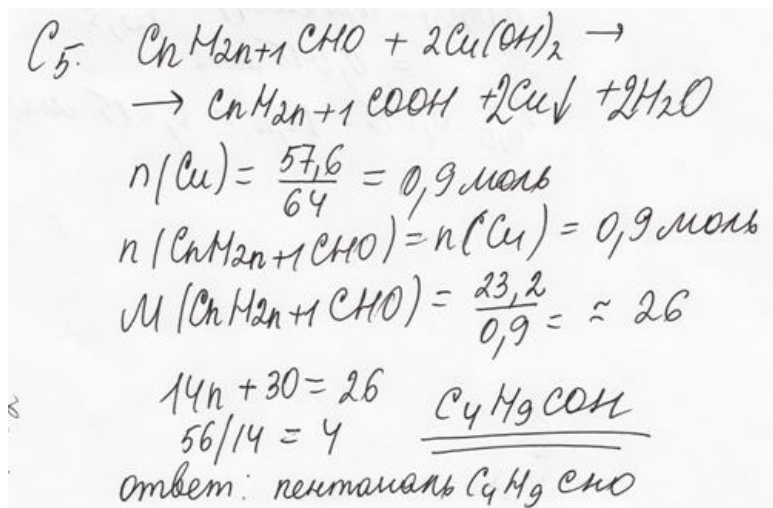 C5. CnH2n+1CHO + 2Cu(OH)2 →
→ CnH2n+1COOH + 2Cu↓ + 2H2O
n(Cu) = 57,6/64 = 0,9 моль
n(CnH2n+1CHO) = n(Cu) = 0,9 моль
M(CnH2n+1CHO) = 23,2/0,9 = ≈ 26
14n + 30 = 26
56/14 = 4
C4H9COH
ответ: пентаналь C4H9CHO